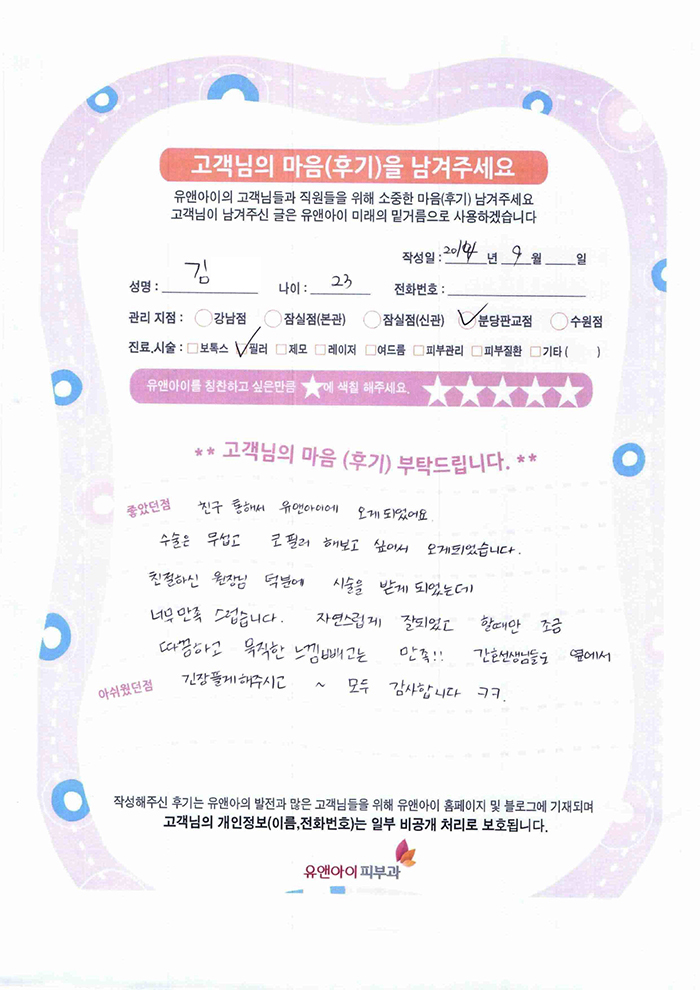 고객님의 마음(후기)을 남겨주세요
유앤아이의 고객님들과 직원들을 위해 소중한 마음(후기) 남겨주세요
고객님이 남겨주신 글은 유앤아이 미래의 밑거름으로 사용하겠습니다
작성일 : 2014 년 9 월 일
성명 : 김 나이 : 23 전화번호 :
관리 지점 : 강남점 잠실점(본관) 잠실점(신관) 분당판교점 수원점
진료.시술 : 보톡스 필러 제모 레이저 여드름 피부관리 피부질환 기타 ( )
유앤아이를 칭찬하고 싶은만큼 ★에 색칠 해주세요. ★★★★★
** 고객님의 마음 (후기) 부탁드립니다. **
좋았던점 친구 통해서 유앤아이에 오게되었어요
수술은 무섭고 코필러 해보고 싶어서 오게되었습니다.
친절하신 원장님 덕분에 시술을 받게 되었는데
너무만족 스럽습니다. 자연스럽게 잘되었고 할때만 조금
따끔하고 묵직한 느낌빼고는 만족!! 간호선생님들도 옆에서
아쉬웠던점 긴장풀게해주시고 ~ 모두 감사합니다 ㅋㅋ.
작성해주신 후기는 유앤아의 발전과 많은 고객님들을 위해 유앤아이 홈페이지 및 블로그에 기재되며
고객님의 개인정보(이름,전화번호)는 일부 비공개 처리로 보호됩니다.
유앤아이피부과